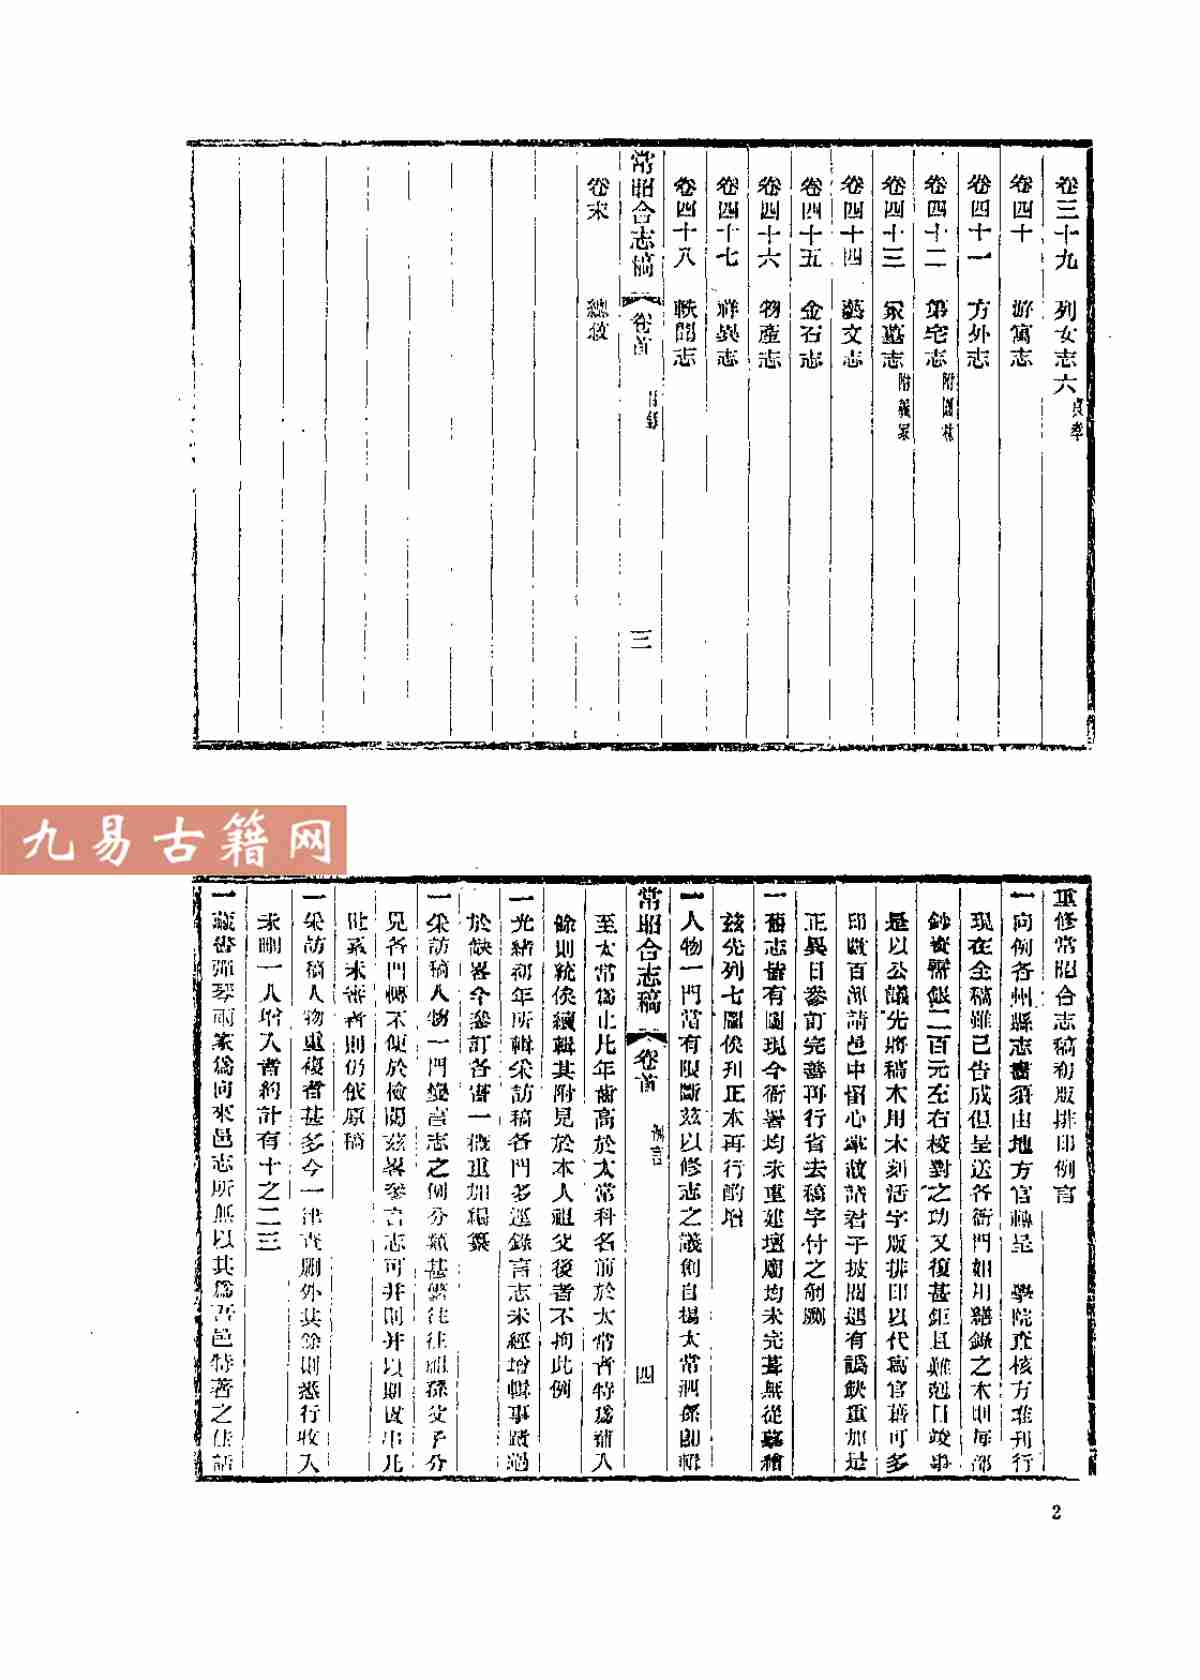 卷三十九　列女志六　貞孝
卷四十　游寓志
卷四十一　方外志
卷四十二　第宅志　附園林
卷四十三　冢墓志　附義冢
卷四十四　藝文志
卷四十五　金石志
卷四十六　物產志
卷四十七　祥異志
卷四十八　軼聞志
常昭合志稿　卷首　目錄　三
卷末　總敘
九易古籍网
重修常昭合志稿初版排印例言
一向例各州縣志書須由地方官轉呈　學院查核方准刊行
現在全稿雖已告成但呈送各衙門如用繕錄之本則每部
鈔資需銀二百元左右校對之功又復甚鉅且難剋日竣事
是以公議先將稿本用木刻活字版排印以代寫官藉可多
印數百部請邑中留心掌故諸君子披閱遇有譌缺重加是
正異日參訂完善再行省去稿字付之剞劂
一舊志皆有圖現今衙署均未重建壇廟均未完葺無從摹繪
茲先列七圖俟刊正本再行酌增
一人物一門當有限斷茲以修志之議創自楊太常泗孫即輯
至太常為止凡年齒高於太常科名前於太常者特為補入
餘則統俟續輯其附見於本人祖父後者不拘此例
常昭合志稿　卷首　例言　四
一光緒初年所輯采訪稿各門多逕錄言志未經增輯事蹟過
於缺畧今參訂各書一概重加編纂
一采訪稿人物一門變言志之例分類甚繁往往祖孫父子分
見各門轉不便於檢閱茲畧參言志可并則并以期致事凡
世系未審者則仍依原稿
一采訪稿人物重複者甚多今一律查刪外其餘則悉行收入
未刪一人增入者約計有十之二三
一藏書彈琴兩家為向來邑志所無以其為吾邑特著之佳話
2